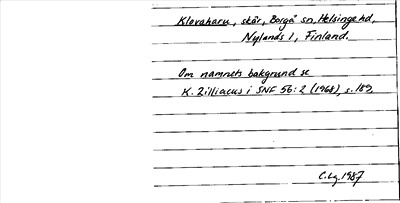 Klovaharu, skär, Borgå sn, Helsinge hd,
Nylands l, Finland.
Om namnets bakgrund se
K. Zilliacus i SNF 56:2 (1968), s. 189,
C.Lg. 1987